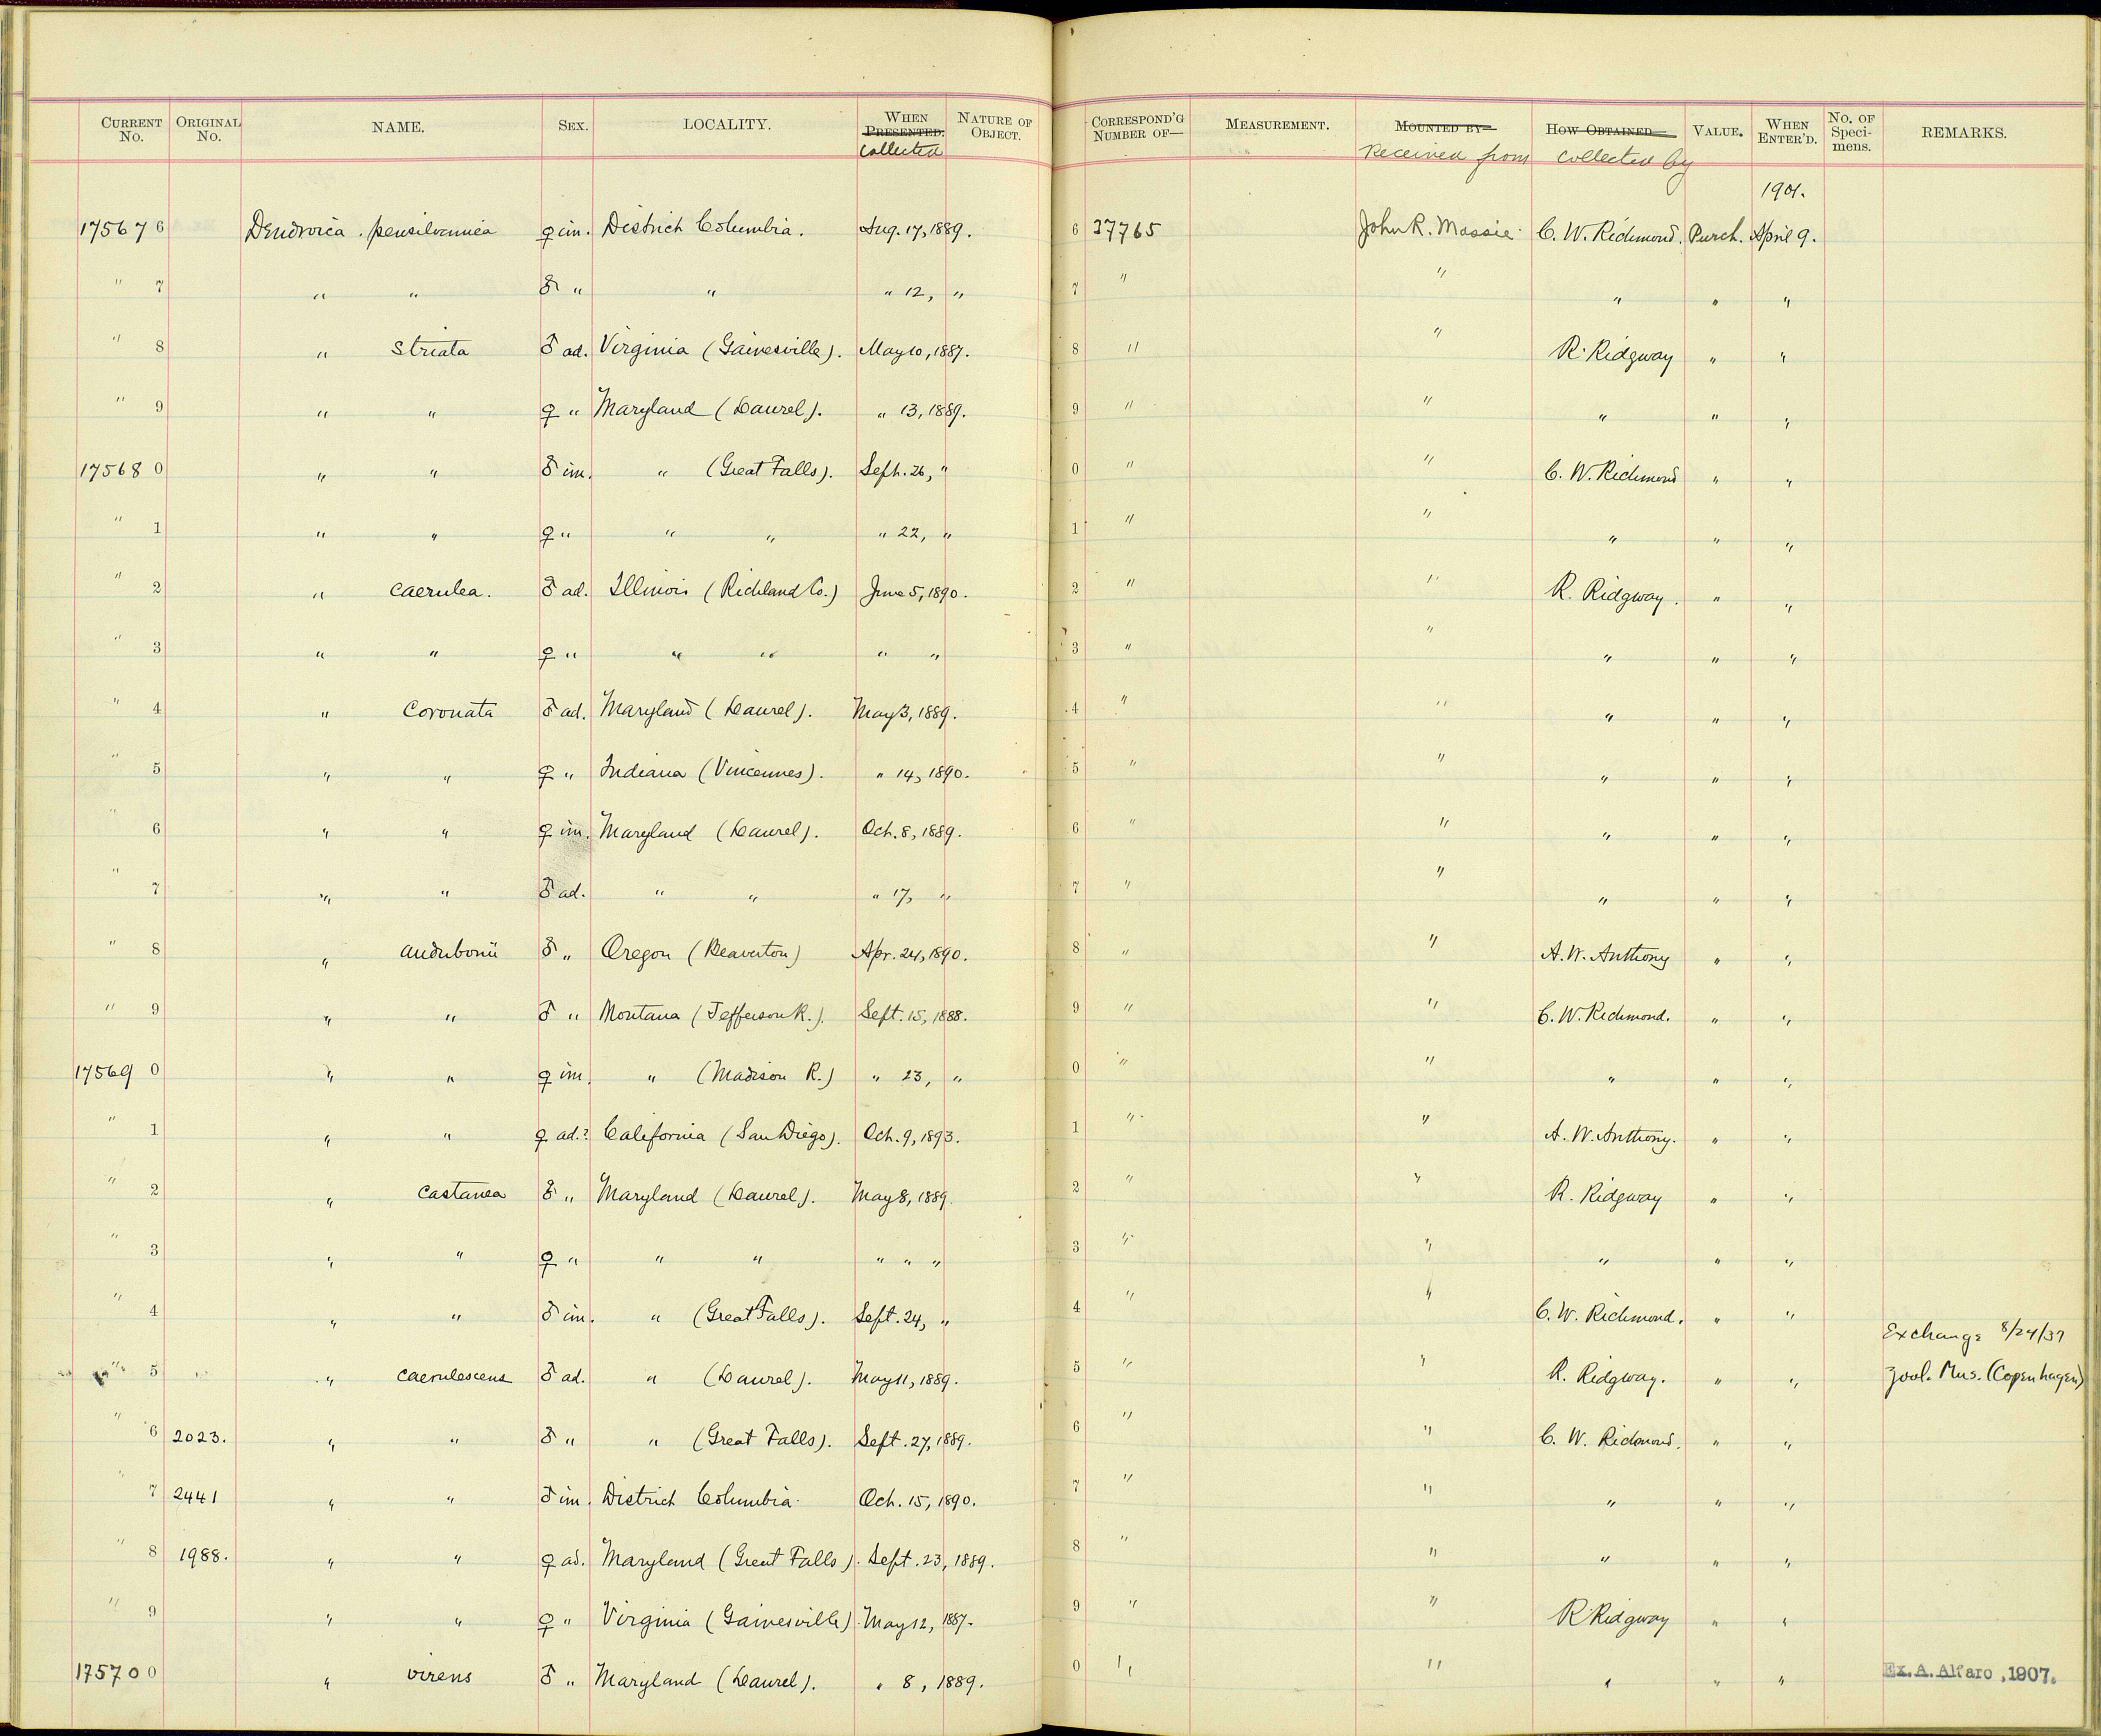 CURRENT No. ORIGINAL No. NAME. SEX. LOCALITY. WHEN PRESENTED. collected NATURE OF OBJECT. CORRESPOND'G NUMBER OF— MEASUREMENT. MOUNTED BY— Received from HOW OBTAINED— collected by VALUE. WHEN ENTER'D. No. OF Specimens. REMARKS.
1901.
175676 Dendroica pensilvanica ♀ im. District Columbia. Aug. 17, 1889. 6 37765 John R. Massie. C. W. Richmond. Purch. April 9.
" 7 " " ♂ " " " 12, " 7 " " " " "
" 8 " striata ♂ ad. Virginia (Gainesville). May 10, 1887. 8 " " R. Ridgway " "
" 9 " " ♀ " Maryland (Laurel). " 13, 1889. 9 " " " " "
175680 " " ♂ im. " (Great Falls). Sept. 26, " 0 " " C. W. Richmond " "
" 1 " " ♀ " " " " 22, " 1 " " " " "
" 2 " caerulea. ♂ ad. Illinois (Richland Co.) June 5, 1890. 2 " " R. Ridgway. " "
" 3 " " ♀ " " " " " 3 " " " " "
" 4 " coronata ♂ ad. Maryland (Laurel). May 3, 1889. 4 " " " " "
" 5 " " ♀ " Indiana (Vincennes). " 14, 1890. 5 " " " " "
" 6 " " ♀ im. Maryland (Laurel). Oct. 8, 1889. 6 " " " " "
" 7 " " ♂ ad. " " " 17, " 7 " " " " "
" 8 " audubonii ♂ " Oregon (Beaverton) Apr. 24, 1890. 8 " " A. W. Anthony " "
" 9 " " ♂ " Montana (Jefferson R.). Sept. 15, 1888. 9 " " C. W. Richmond. " "
175690 " " ♀ im. " (Madison R.) " 23, " 0 " " " " "
" 1 " " ♀ ad.? California (San Diego). Oct. 9, 1893. 1 " " A. W. Anthony. " "
" 2 " castanea ♂ " Maryland (Laurel). May 8, 1889. 2 " " R. Ridgway " "
" 3 " " ♀ " " " " " " 3 " " " " "
" 4 " " ♂ im. " (Great Falls). Sept. 24, " 4 " " C. W. Richmond. " "
Exchange 8/24/37
" 5 " caerulescens ♂ ad. " (Laurel). May 11, 1889. 5 " " R. Ridgway. " " Zool. Mus. (Copenhagen)
" 6 2023. " " ♂ " " (Great Falls). Sept. 27, 1889. 6 " " C. W. Richmond. " "
" 7 2441 " " ♂ im. District Columbia. Oct. 15, 1890. 7 " " " " "
" 8 1988. " " ♀ ad. Maryland (Great Falls). Sept. 23, 1889. 8 " " " " "
" 9 " " ♀ " Virginia (Gainesville). May 12, 1887. 9 " " R Ridgway " "
175700 " virens ♂ " Maryland (Laurel). " 8, 1889. 0 " " " " " Ex. A. Alfaro, 1907.